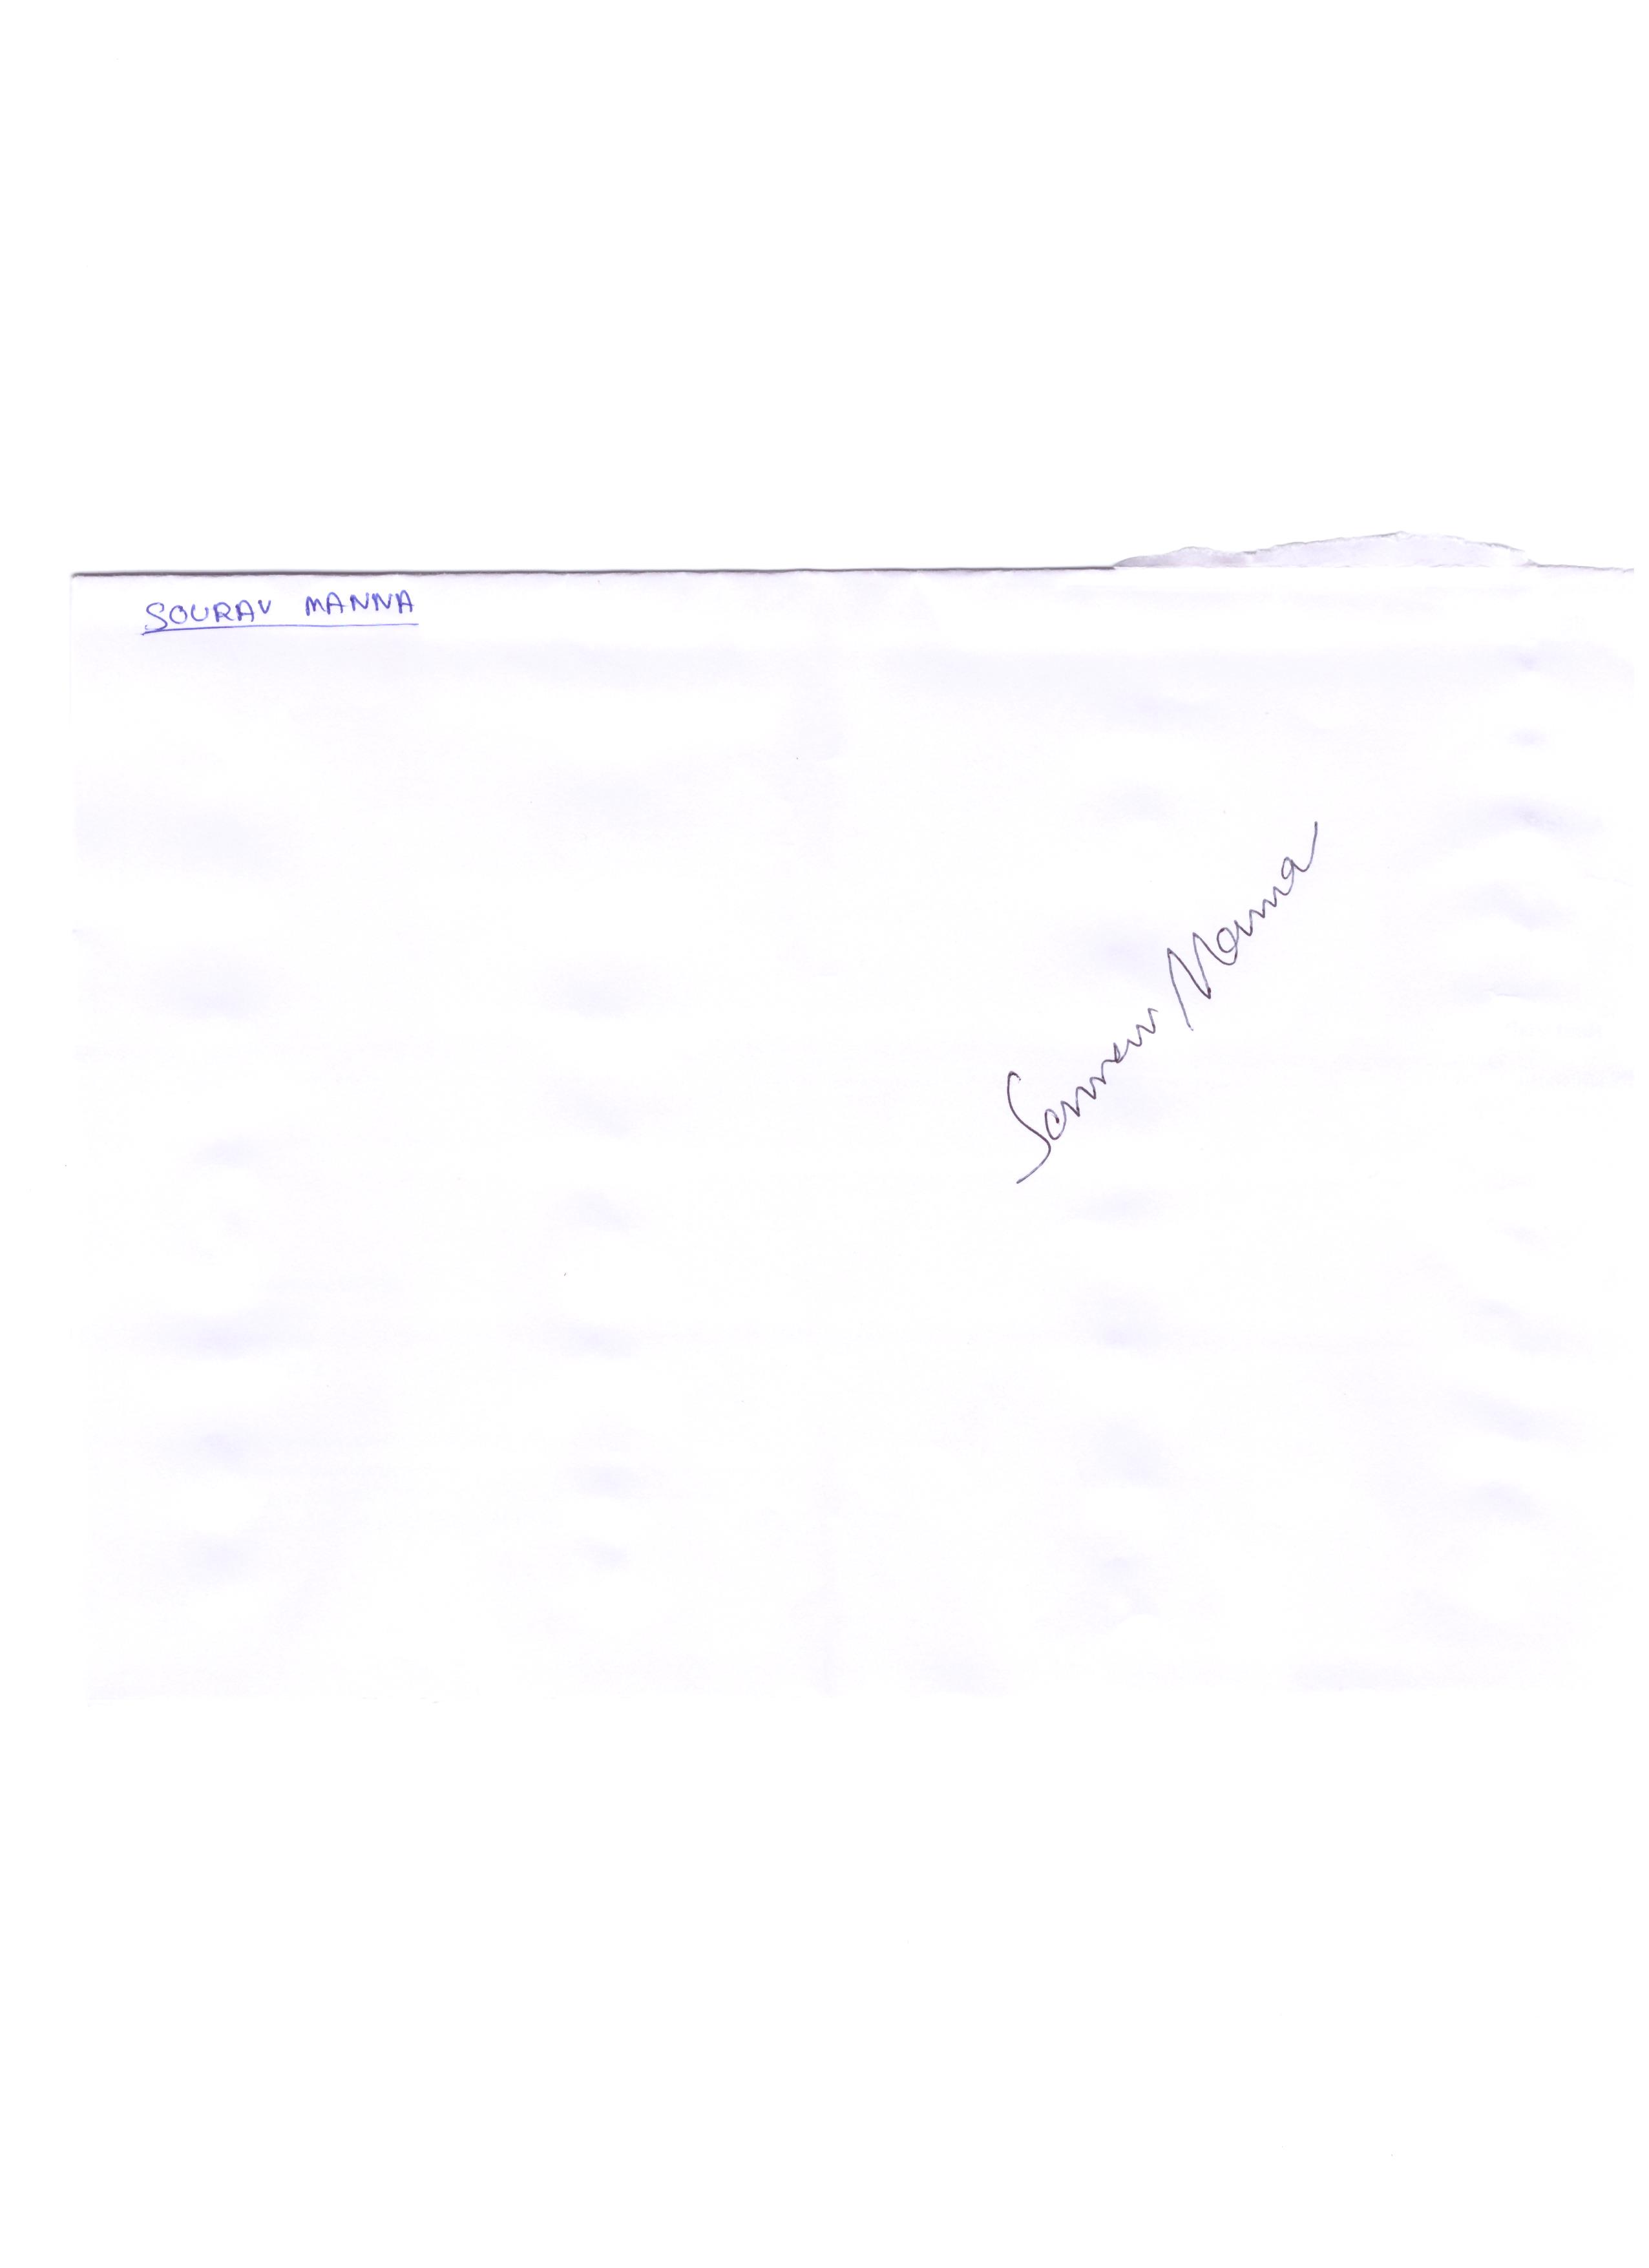 SOURAV MANNA
Sourav Manna